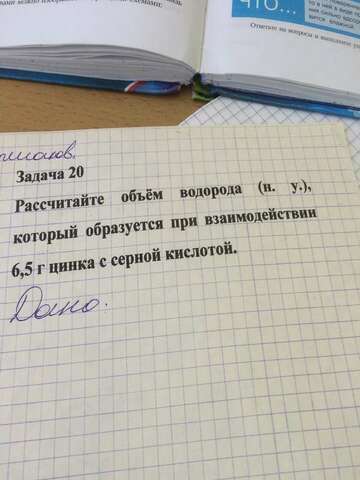 ЧТО...
Ответьте на вопросы и выполните
Задача 20
Рассчитайте объём водорода (н. у.),
который образуется при взаимодействии
6,5 г цинка с серной кислотой.
Дано: